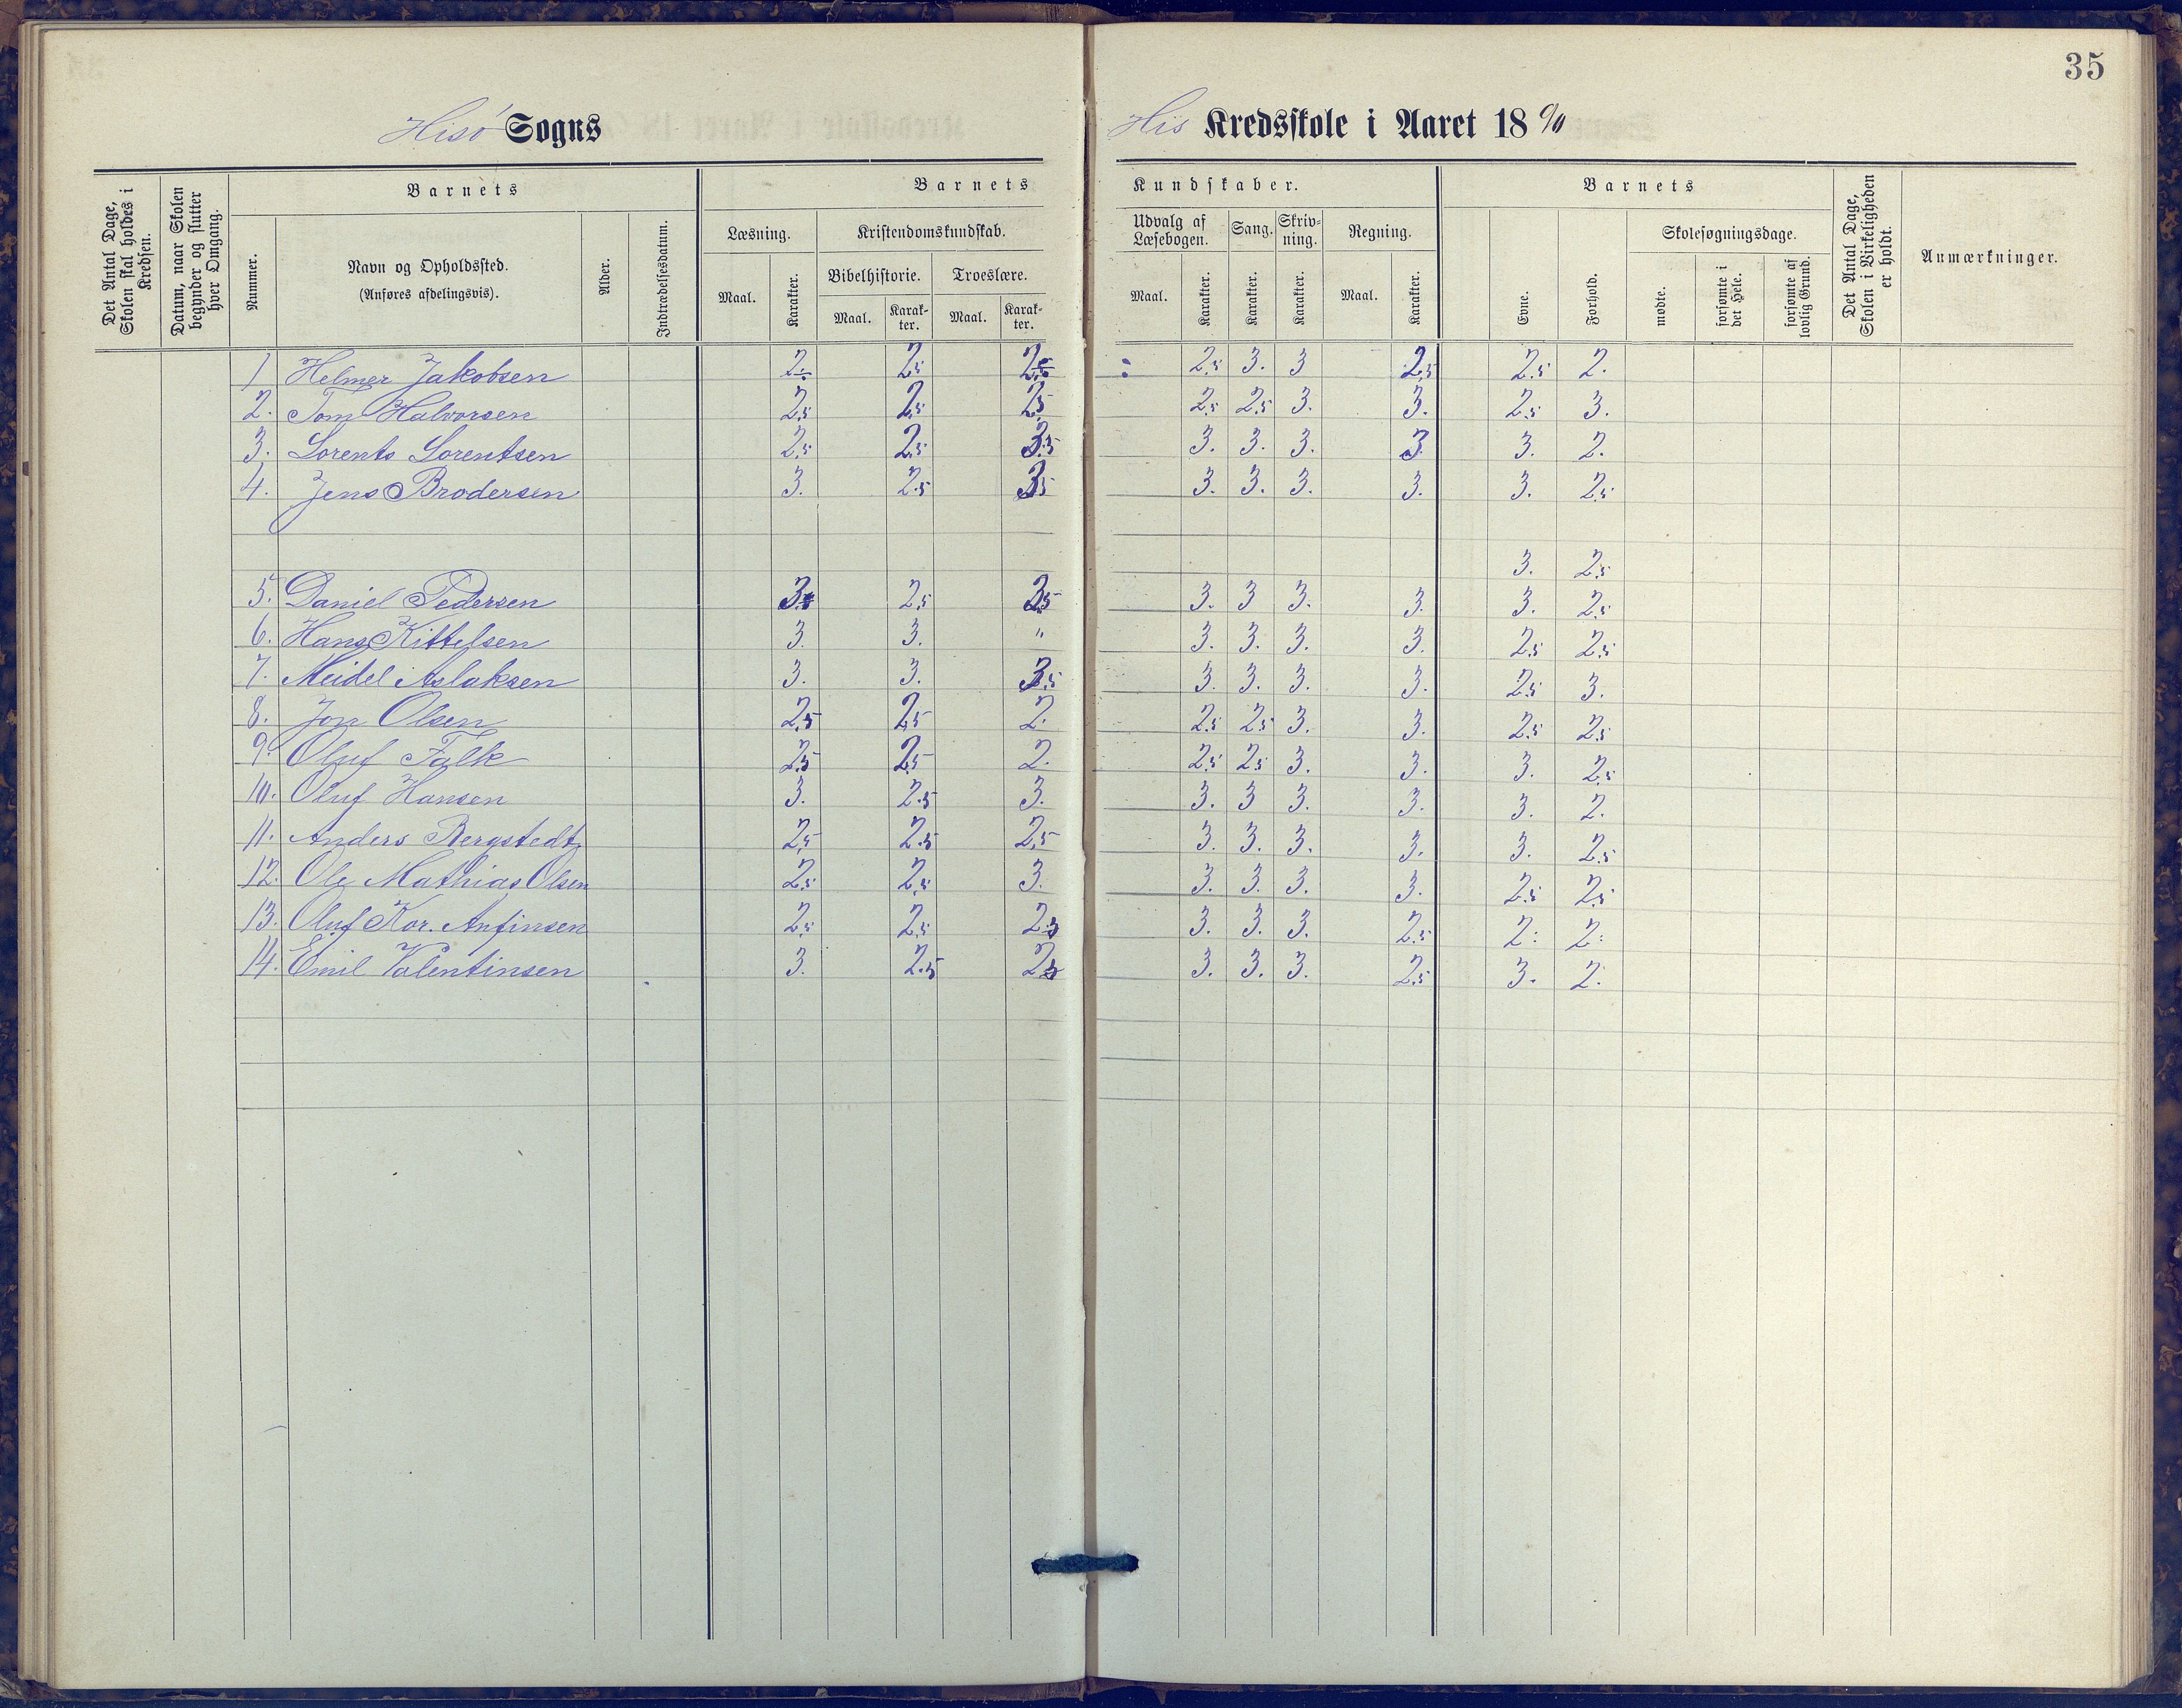 35
Hisö Sogns His Kredsskole i Aaret 18 90
Det Antal Dage, Skolen skal holdes i Kredsen.
Datum, naar Skolen begynder og slutter hver Omgang.
Barnets
Nummer.
Navn og Opholdssted.
(Anføres afdelingsvis).
Alder.
Indtrædelsesdatum.
Barnets Kundskaber.
Læsning.
Maal. Karakter.
Kristendomskundskab.
Bibelhistorie. Troeslære.
Maal. Karak-ter. Maal. Karak-ter.
Udvalg af Læsebogen. Sang. Skriv-ning. Regning.
Maal. Karakter. Karakter. Karakter. Maal. Karakter.
Barnets
Evne. Forhold.
Skolesøgningsdage.
mødte. forsømte i det Hele. forsømte af lovlig Grund.
Det Antal Dage, Skolen i Virkeligheden er holdt.
Anmærkninger.
1 Helmer Jakobsen 2 2,5 2,5 2,5 3. 3 2,5 2,5 2.
2. Tom Halvorsen 2,5 2,5 2,5 2,5 2,5 3. 3. 2,5 3.
3. Lorents Lorentsen 2,5 2,5 3,5 3. 3. 3. 3 3. 2.
4. Jens Brodersen 3. 2,5 3,5 3. 3. 3. 3. 3. 2,5
3. 2,5
5. Daniel Pedersen 3. 2,5 3,5 3. 3 3. 3. 3. 2,5
6. Hans Kittelsen 3. 3. " 3. 3. 3. 3. 2,5 2,5
7. Meidel Aslaksen 3. 3. 3,5 3. 3. 3. 3. 2,5 3.
8. Jon Olsen 2,5 2,5 2. 2,5 2,5 3. 3. 2,5 2,5
9. Oluf Falk 2,5 2,5 2. 2,5 2,5 3. 3. 3. 2,5
10. Oluf Hansen 3. 2,5 3. 3. 3 3. 3. 3. 2.
11. Anders Bergstedt 2,5 2,5 2,5 3. 3. 3. 3. 3. 2,5
12. Ole Mathias Olsen 2,5 2,5 3. 3. 3. 3. 3. 2,5 2,5
13. Oluf Kor. Anfinsen 2,5 2,5 2,5 3. 3. 3. 2,5 2. 2.
14. Emil Valentinsen 3. 2,5 2,5 3. 3. 3. 2,5 3. 2.